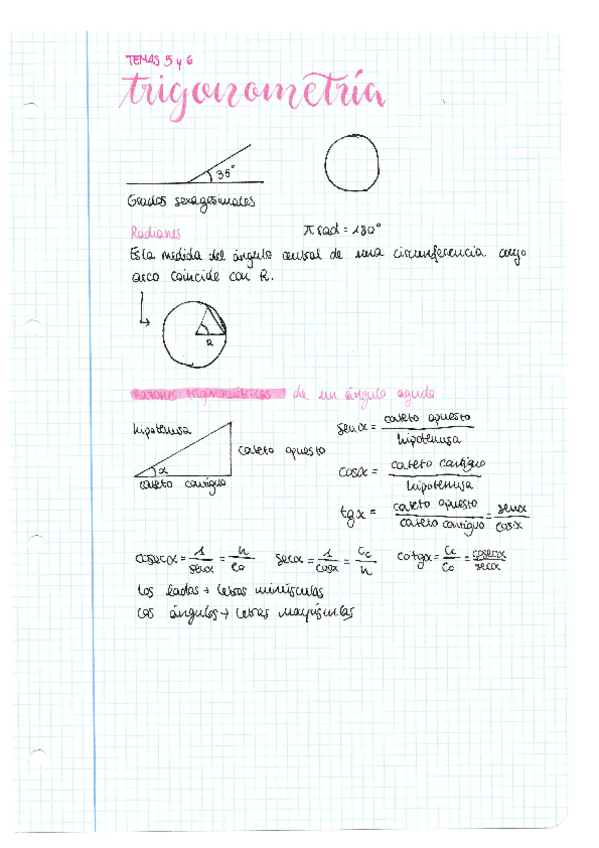 TEMAS 5 y 6
trigonometría
35°
Grados sexagesimales
Radianes
π rad = 180°
Es la medida del ángulo central de una circunferencia cuyo
arco coincide con R.
R
Razones trigonométricas de un ángulo agudo
hipotenusa
cateto opuesto
α
cateto contiguo
sen α = cateto opuesto / hipotenusa
cos α = cateto contiguo / hipotenusa
tg α = cateto opuesto / cateto contiguo = sen α / cos α
cosec α = 1 / sen α = h / Co
sec α = 1 / cos α = Cc / h
cotg α = Cc / Co = cosec α / sec α
Los lados → letras minúsculas
Los ángulos → letras mayúsculas